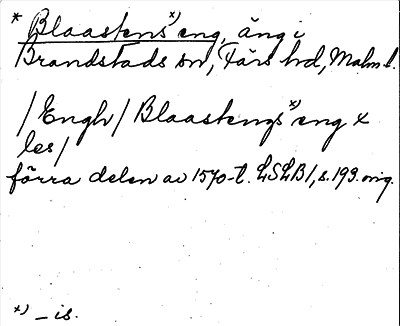 * Blaastens˟⁾ eng, äng i
Brandstads sn, Färs hd, Malm. l.
/Engh/ Blaastengs˟⁾ eng x
les/
förra delen av 1570-t. LSLB1, s. 193. orig.
x) – is.